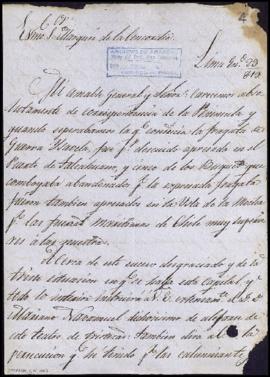 4
Exmo. Sr. Marques de la Concordia
ARCHIVO DE
Lima En.o 23
819.
Mi amable General y Señor: Carecemos abso-
lutamente de correspondencia de la Peninsula y
quando esperabamos la q.e conducia la fragata de
Guerra Isavel, fue p.r descuido apresada en el
Puerto de Talcahuano, y cinco de los Buques que
comboyaba abandonados p.r la expresada fragata
fueron tambien apresados en Ysla de la Mocha
p.r las fuerzas maritimas de Chile muy superio-
res á las nuestras.
Al cerca de este suceso desgraciado y de la
triste situacion en q.e se halla esta Capital, y
todo lo instruirá á V.E. extensam.te D.n
Mariano
este teatro de tambien dirá
persecucion q.e he tenido p.r las calumniantes